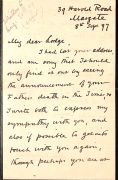 39 Harold Road
Margate
9th Sept 97
My dear Lodge
I had lost your address
and am sorry that I should
only find it out by seeing
the announcement of your
Father's death in the Times.
I write both to express my
sympathy with you, and
also if possible to get into
touch with you again,
though perhaps you are at